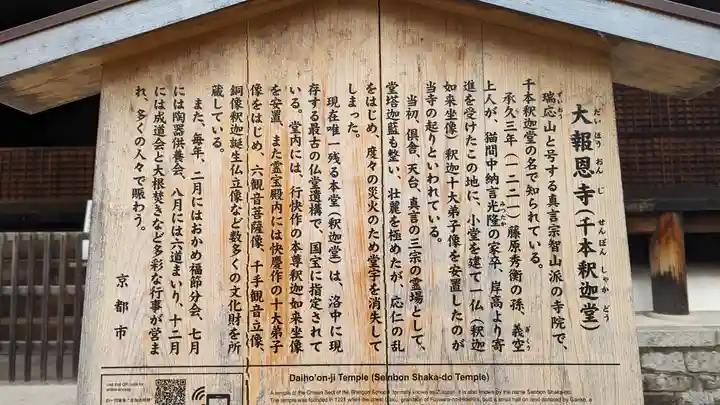 大報恩寺(千本釈迦堂)
だいほうおんじ せんぼんしゃかどう
瑞応山と号する真言宗智山派の寺院で、
ずいおう
千本釈迦堂の名で知られている。
承久三年(一二二一)藤原秀衡の孫、義空
ぎくう
上人が、猫間中納言光隆の家卒、岸高より寄
進を受けたこの地に、小堂を建て一仏(釈迦
如来坐像)釈迦十大弟子像を安置したのが
当寺の起りといわれている。
当初、倶舎、天台、真言の三宗の霊場として、
堂塔伽藍も整い、壮麗を極めたが、応仁の乱
をはじめ、度々の災火のため堂宇を消失して
しまった。
現在唯一残る本堂(釈迦堂)は、洛中に現
存する最古の仏堂遺構で、国宝に指定されて
いる。堂内には、行快作の本尊釈迦如来坐像
を安置、また霊宝殿内には快慶作の十大弟子
像をはじめ、六観音菩薩像、千手観音立像、
銅像釈迦誕生仏立像など数多くの文化財を所
蔵している。
また、毎年、二月にはおかめ福節分会、七月
には陶器供養会、八月には六道まいり、十二月
には成道会と大根焚きなど多彩な行事が営ま
れ、多くの人々で賑わう。
京都市
Daiho'on-ji Temple (Senbon Shaka-do Temple)
A temple of the Chisan Sect of the Shingon School, formally known as Zuiozan. It is also known by the name Senbon Shaka-do.
The temple was founded in 1221 when the priest Giku, grandson of Fujiwara-no-Hidehira, built a small hall on land donated by